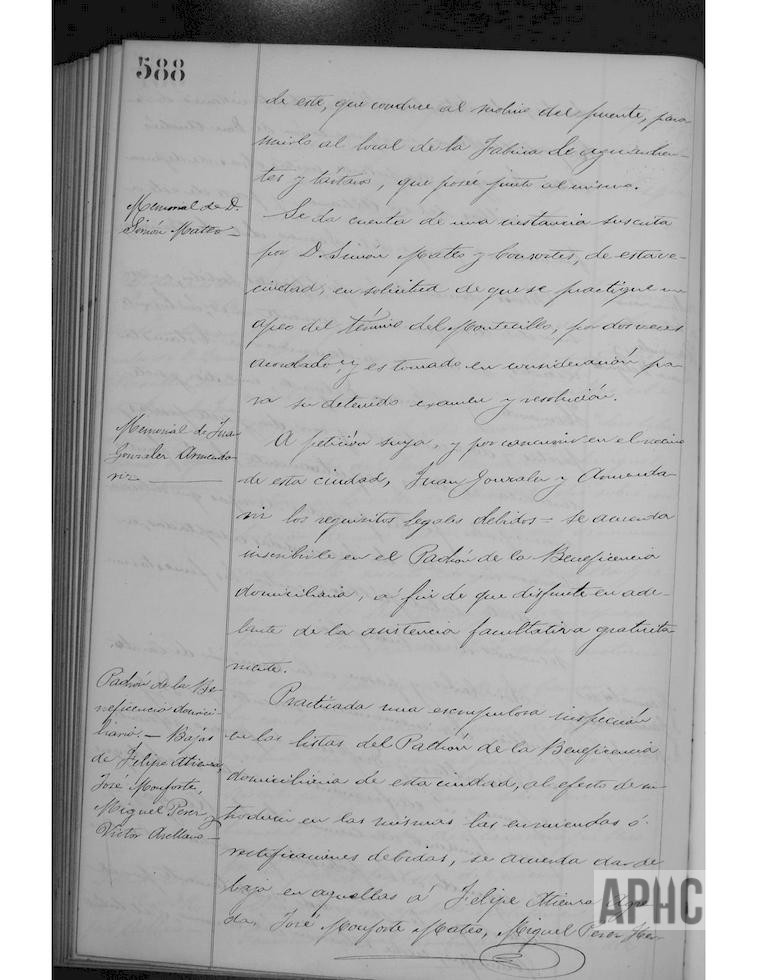 588
de este, que conduce al molino del puente, para
unirlo al local de la Fabrica de aguardien-
tes y tártaro, que posée junto al mismo.
Memorial de D.
Simón Mateo —
Se da cuenta de una instancia suscrita
por D. Simón Mateo y Consortes, de esta ve-
cindad, en solicitud de que se practique un
apeo del término del Monticillo, por dos veces
acordado, y es tomado en consideración pa-
ra su detenido examen y resolución.
Memorial de Juan
Gonzalez Armenda-
riz —
A petición suya, y por concurrir en el vecino
de esta ciudad, Juan Gonzalez y Armenda-
riz los requisitos legales debidos = se acuerda
inscribirle en el Padrón de la Beneficencia
domiciliaria, a fin de que disfrute en ade-
lante de la asistencia facultativa gratuita-
mente.
Padrón de la Be-
neficencia domici-
liaria. — Bajas
de Felipe Atienza,
José Monforte,
Miguel Perez, y
Victor Arellano —
Practicada una escrupulosa inspección
en las listas del Padrón de la Beneficencia
domiciliaria de esta ciudad, al efecto de in-
troducir en las mismas las enmiendas ó
rectificaciones debidas, se acuerda dar de
baja en aquellas á Felipe Atienza Agre-
da, José Monforte Mateo, Miguel Perez Her-
APHC